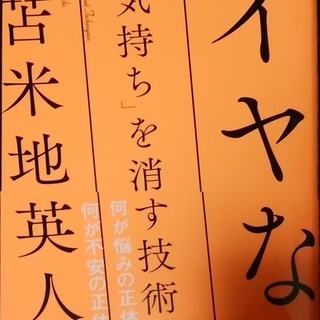 イヤな
気持ち」を消す技術
何が悩みの正体
何が不安の正体
苫米地英人